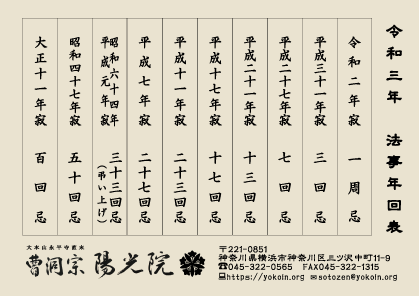 令和三年 法事年回表
令和二年寂 一周忌
平成三十一年寂 三回忌
平成二十七年寂 七回忌
平成二十一年寂 十三回忌
平成十七年寂 十七回忌
平成十一年寂 二十三回忌
平成七年寂 二十七回忌
昭和六十四年 平成元年寂 三十三回忌 (弔い上げ)
昭和四十七年寂 五十回忌
大正十一年寂 百回忌
大本山永平寺直末
曹洞宗 陽光院
〒221-0851
神奈川県横浜市神奈川区三ツ沢中町11-9
☎045-322-0565 FAX045-322-1315
https://yokoin.org ✉sotozen@yokoin.org